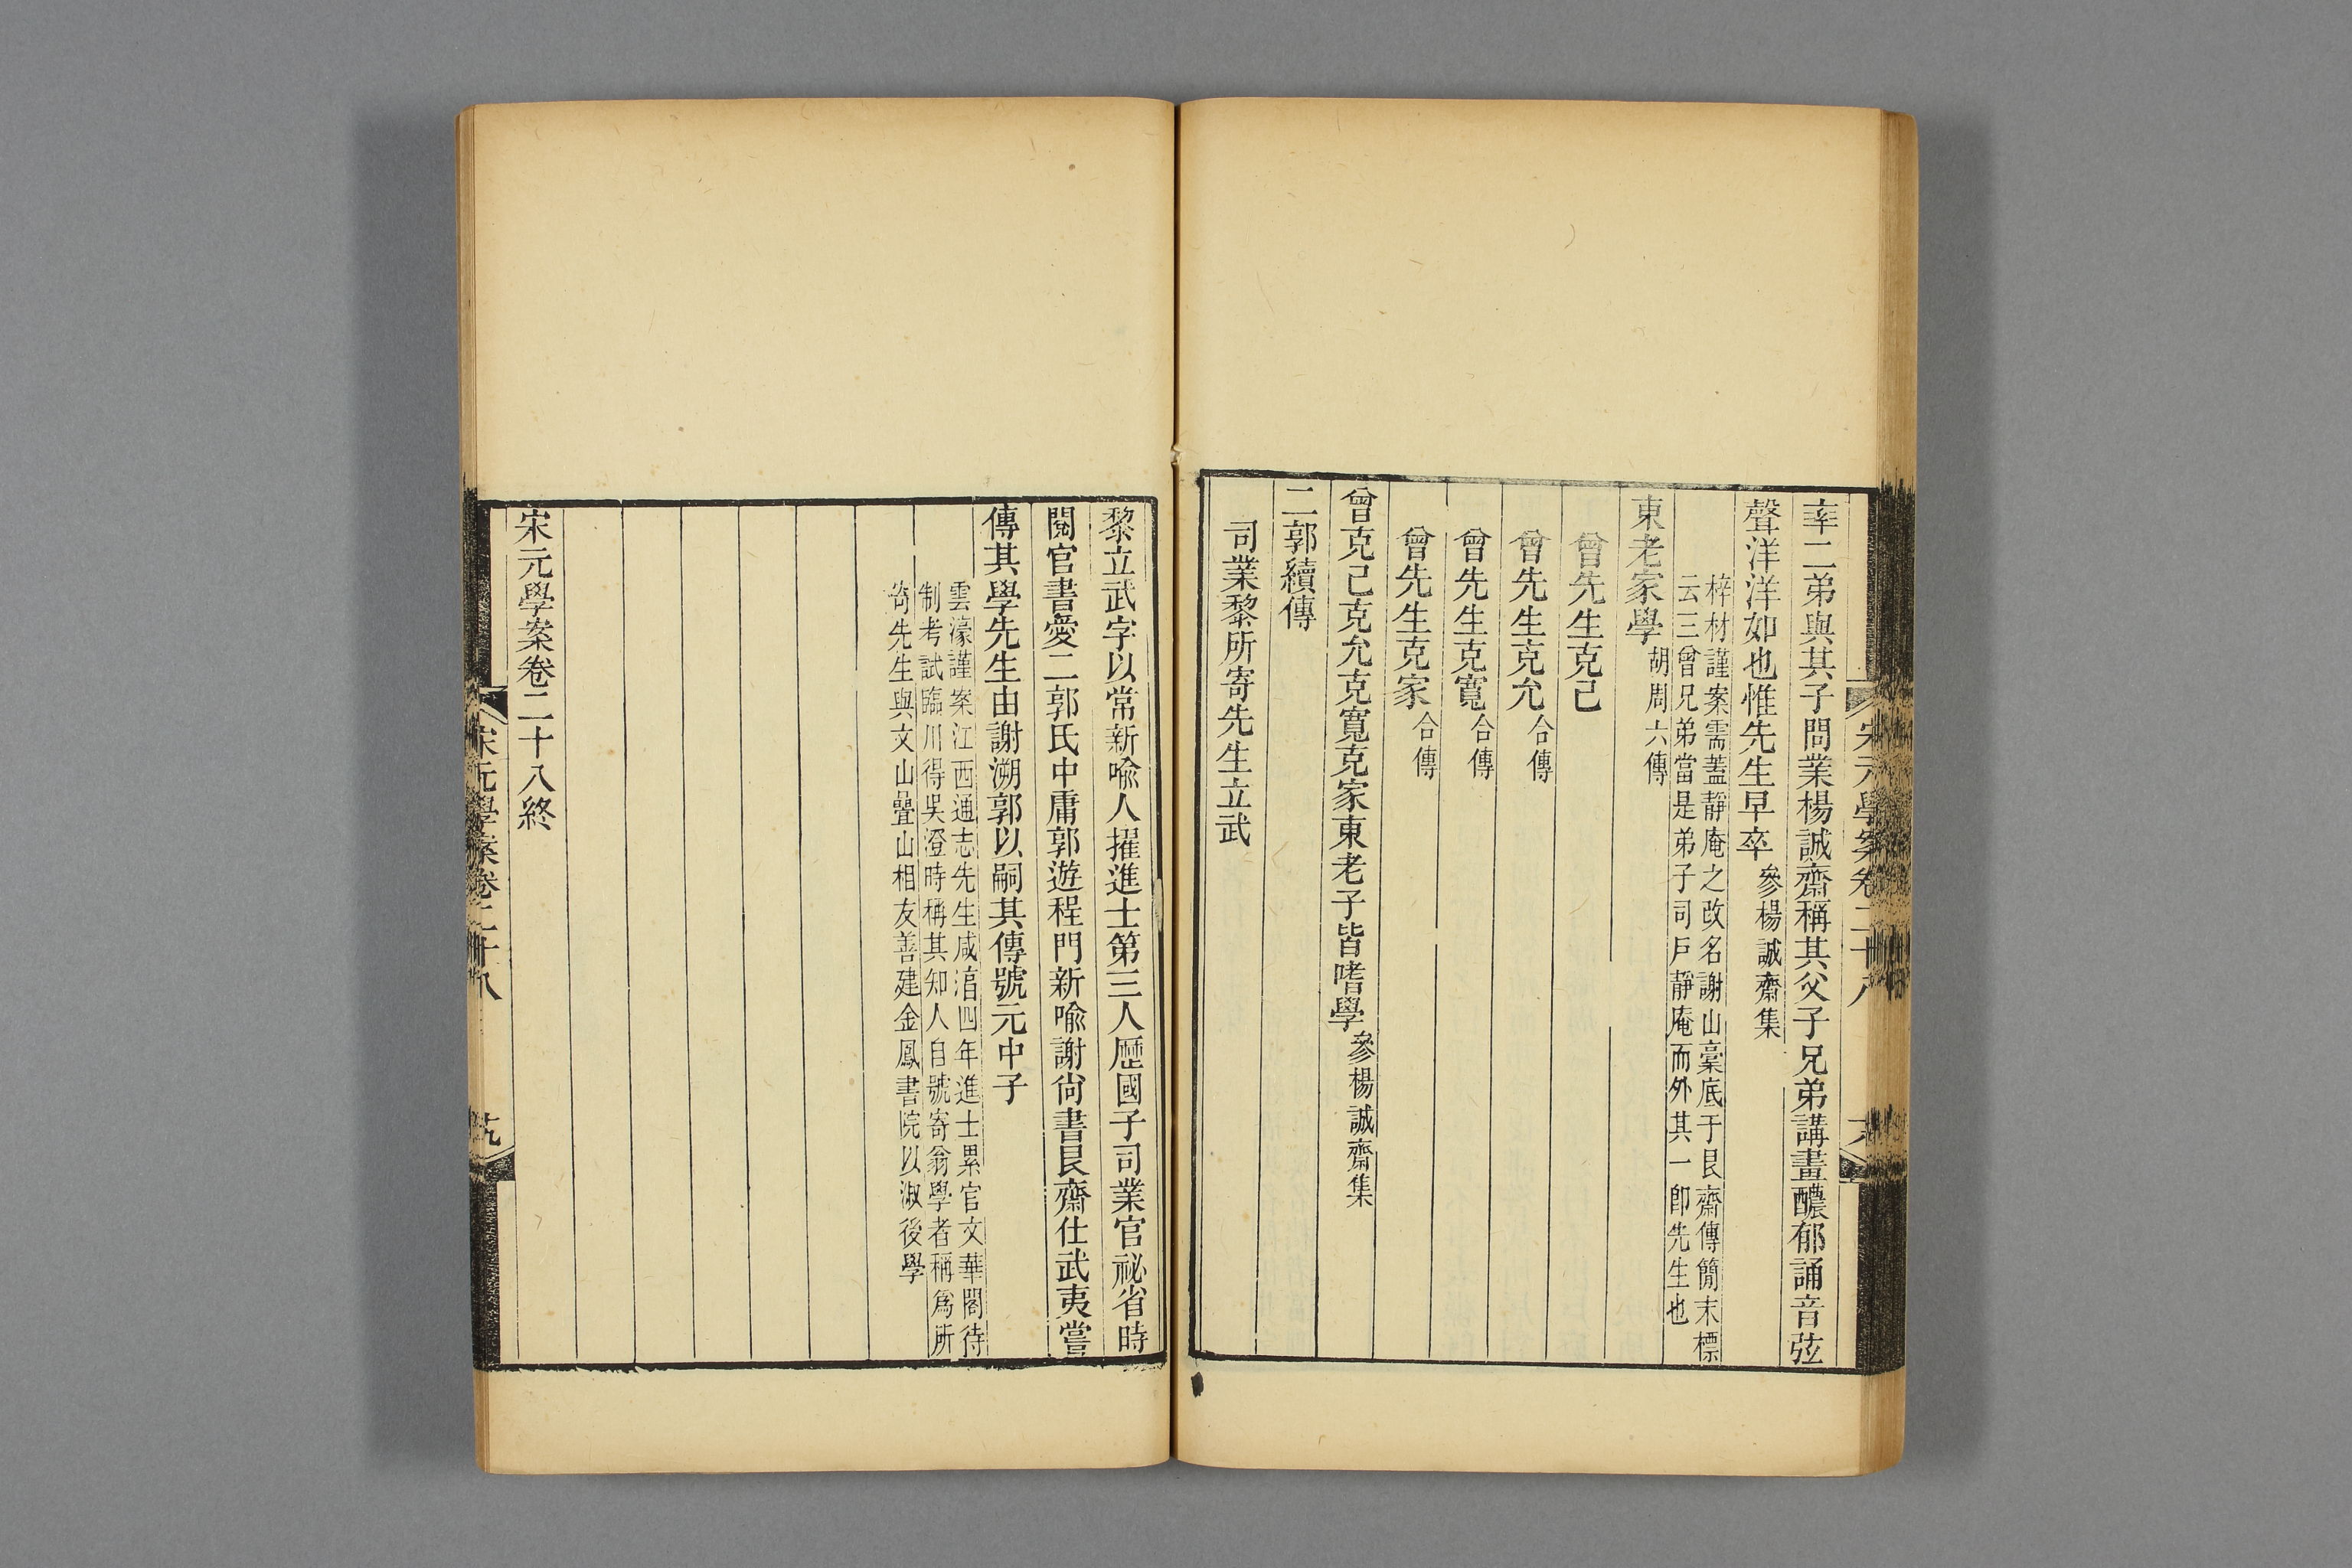 宋元學案卷二十八
率二弟與其子問業楊誠齋稱其父子兄弟講畫醲郁誦音弦
聲洋洋如也惟先生早卒參楊誠齋集
梓材謹案需蓋靜庵之改名謝山稾底于艮齋傳簡末標
云三曾兄弟當是弟子司戶靜庵而外其一卽先生也
東老家學胡周六傳
曾先生克己
曾先生克允合傳
曾先生克寬合傳
曾先生克家合傳
曾克己克允克寬克家東老子皆嗜學參楊誠齋集
二郭續傳
司業黎所寄先生立武
黎立武字以常新喩人擢進士第三人歷國子司業官祕省時
閱官書愛二郭氏中庸郭遊程門新喩謝尙書艮齋仕武夷嘗
傳其學先生由謝溯郭以嗣其傳號元中子
雲濠謹案江西通志先生咸湻四年進士累官文華閣待
制考試臨川得吳澄時稱其知人自號寄翁學者稱爲所
寄先生與文山疊山相友善建金鳳書院以淑後學
宋元學案卷二十八終
宋元學案卷二十八